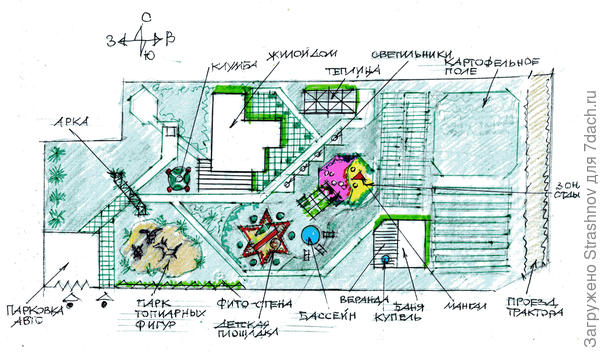 С
З
В
Ю
КЛУМБА
ЖИЛОЙ ДОМ
СВЕТИЛЬНИКИ
ТЕПЛИЦА
КАРТОФЕЛЬНОЕ
ПОЛЕ
АРКА
ЗОН
ОТДЫ
ПАРКОВКА
АВТО
ПАРК
ТОПИАРНЫХ
ФИГУР
ФИТО-СТЕНА
ДЕТСКАЯ
ПЛОЩАДКА
БАССЕЙН
ВЕРАНДА
КУПЕЛЬ
БАНЯ
МАНГАЛ
ПРОЕЗД
ТРАКТОРА
Загружено Strashnov для 7dach.ru